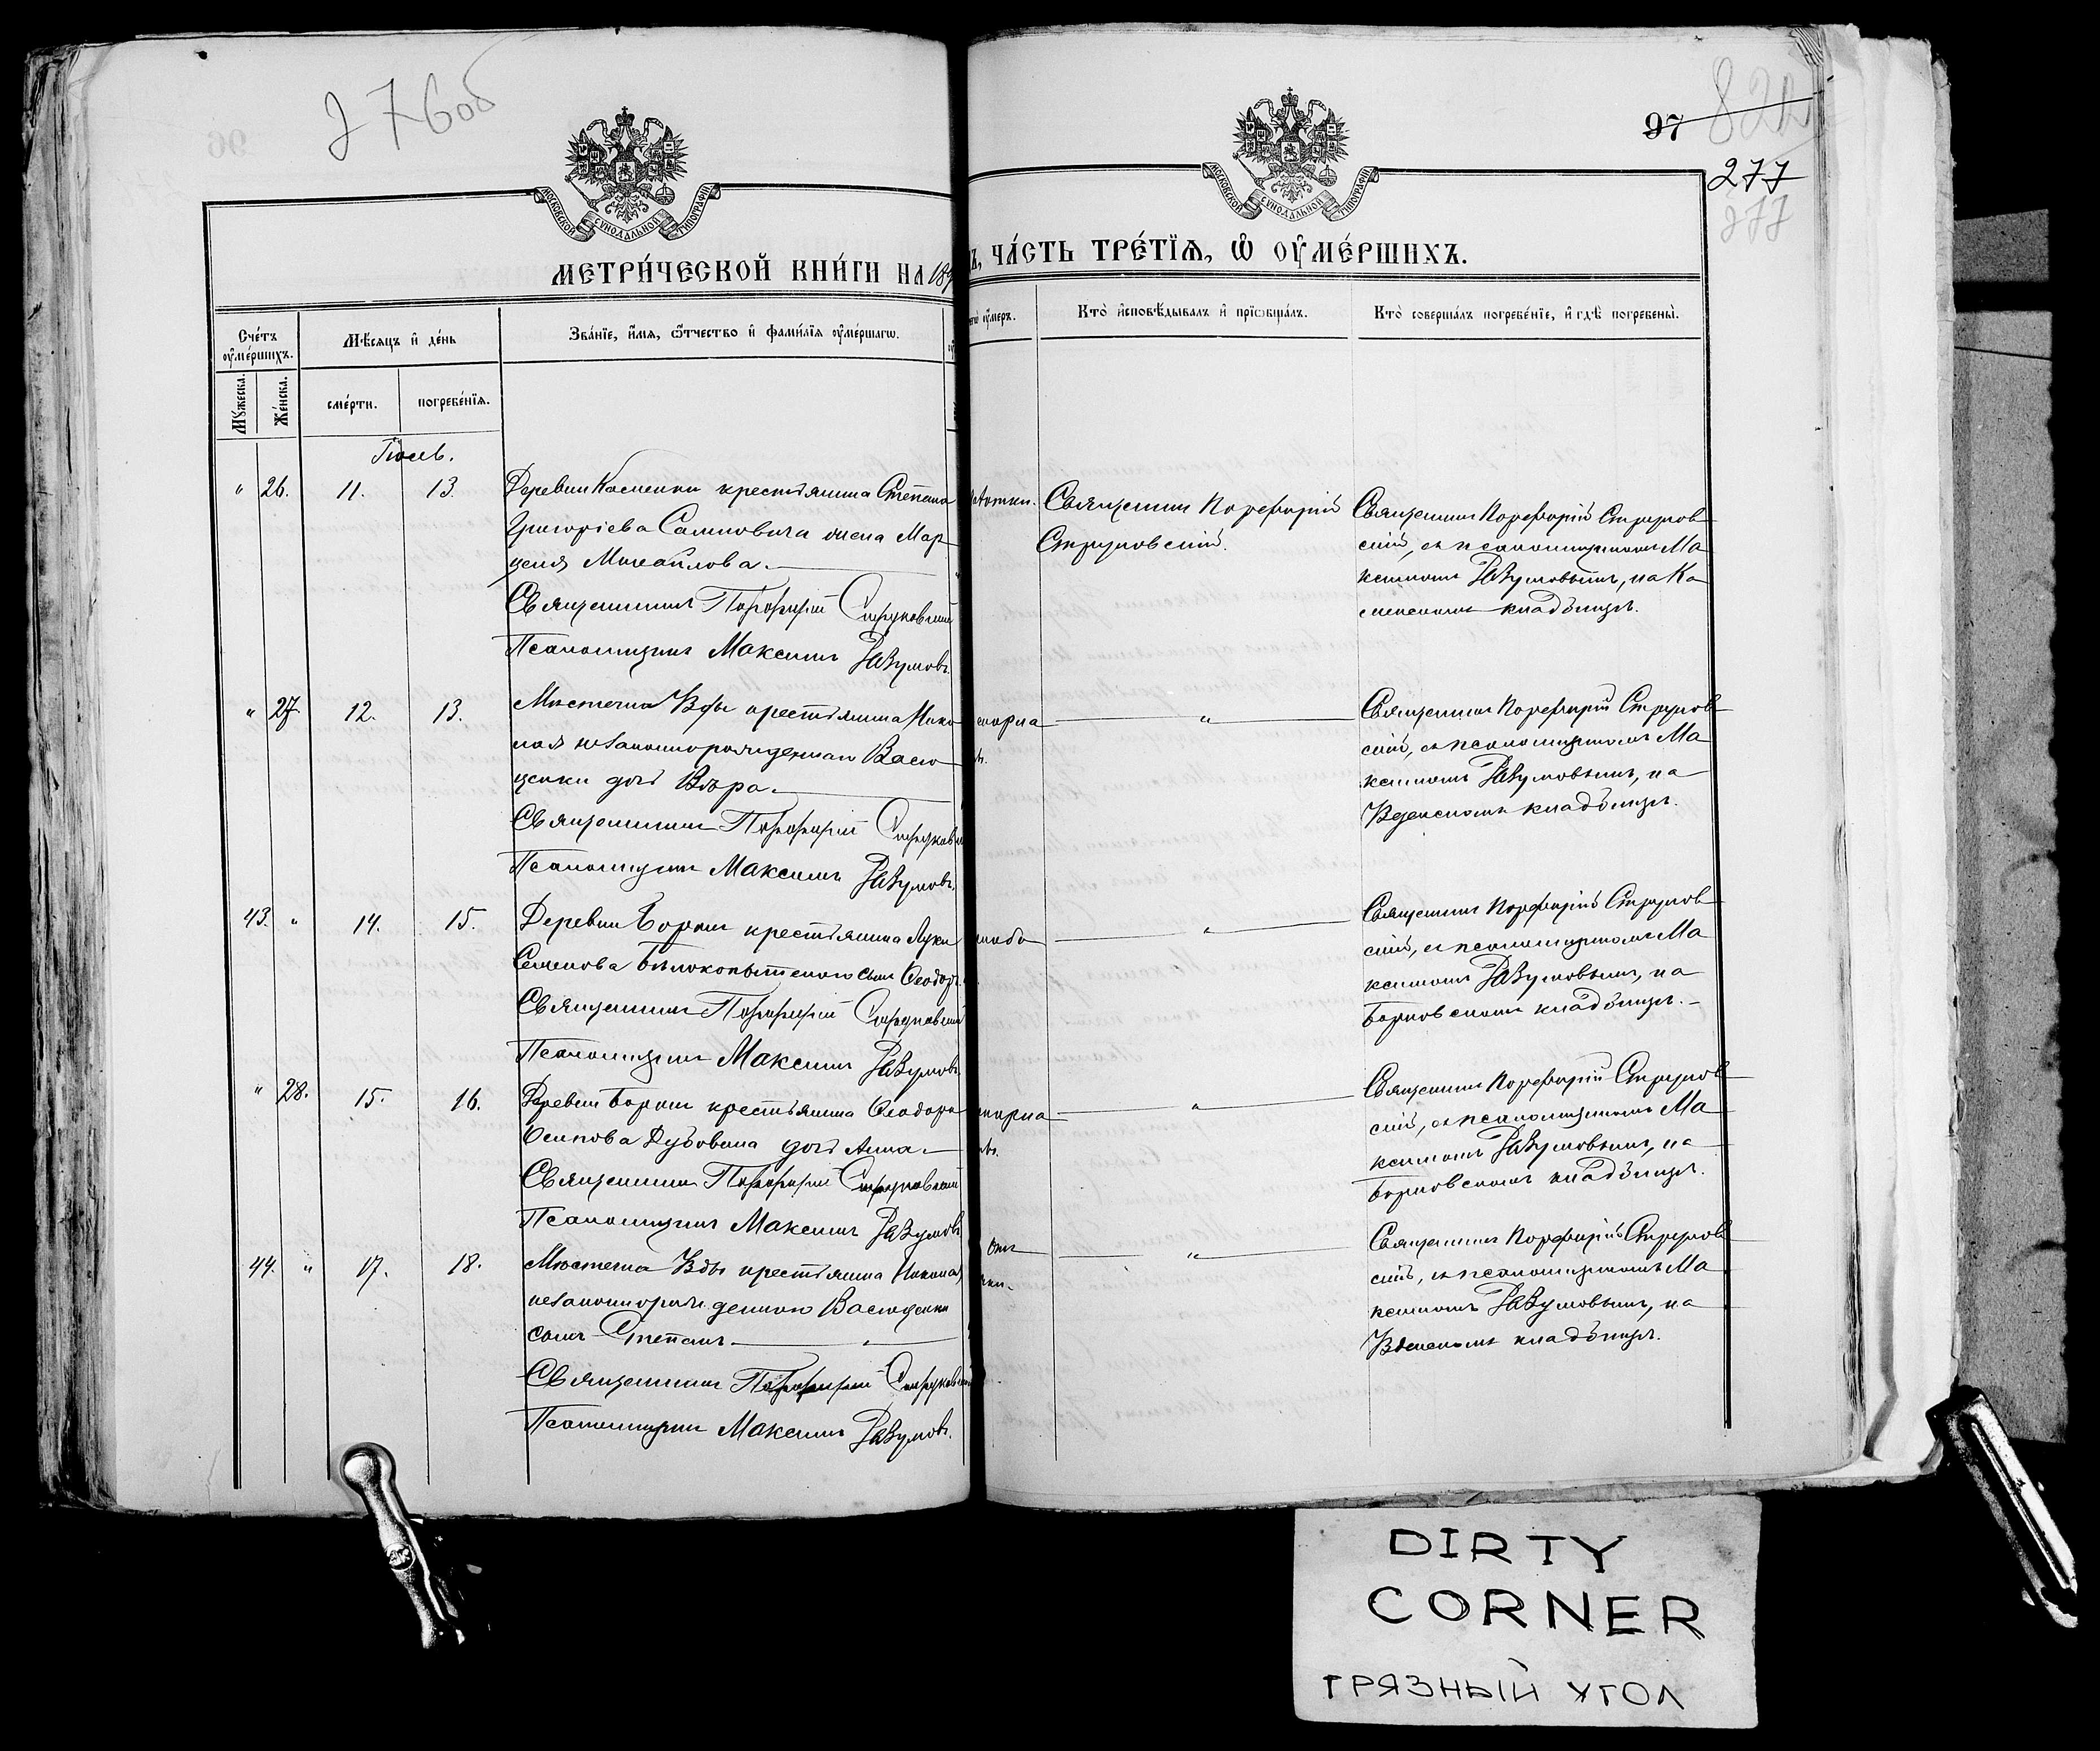 276об
МОСКОВСКОЙ СѴНОДАЛЬНОЙ ТИПОГРАФІИ
МЕТРИ́ЧЕСКОЙ КНИ́ГИ НА 189
Сче́тъ оу҆ме́ршихъ.
Мѣ́сяцъ и҆ де́нь
Зва́нїе, и҆́мѧ, ѻ҆́тчество и҆ фами́лїѧ оу҆ме́ршагѡ.
Му́жеска.
Же́нска.
сме́рти.
погребе́нїѧ.
Іюль.
" 26. 11. 13. Деревни Каменки крестьянина Степана
Григоріева жена Мар
Михайлова.
Священникъ Порфирій Струковскій
Псаломщикъ Максимъ Разумовъ.
" 27. 12. 13. Мѣстечка крестьянина Нико
лая незаконнорожденнаго Васю
щенки дочь Вѣра.
Священникъ Порфирій Струковскій
Псаломщикъ Максимъ Разумовъ.
43. " 14. 15. Деревни Борки крестьянина Луки
Семенова Бѣлокопытскаго сынъ Ѳеодоръ.
Священникъ Порфирій Струковскій
Псаломщикъ Максимъ Разумовъ
" 28. 15. 16. Деревни Борки крестьянина Ѳеодора
Осипова Дубовика дочь Анна.
Священникъ Порфирій Струковскій
Псаломщикъ Максимъ Разумовъ
44. " 17. 18. Мѣстечка крестьянина Николая
незаконнорожденнаго Васющенки
сынъ Степанъ
Священникъ Порфирій Струковскій
Псаломщикъ Максимъ Разумовъ.
97
277
277
МОСКОВСКОЙ СѴНОДАЛЬНОЙ ТИПОГРАФІИ
Ъ, ЧА́СТЬ ТРЕ́ТЇѦ, Ѡ҆ ОУ҆МЕ́РШИХЪ.
оу҆меръ.
Кто̀ и҆сповѣ́дывалъ и҆ прїѡбща́лъ.
Кто̀ соверша́лъ погребе́нїе, и҆ гдѣ̀ погребены̀.
Священникъ Порфирій
Струковскій.
Священникъ Порфирій Струков
скій, съ псаломщикомъ Ма
ксимомъ Разумовымъ, на Ка
менскомъ кладбищѣ.
"
Священникъ Порфирій Струков
скій, съ псаломщикомъ Ма
ксимомъ Разумовымъ, на
кладбищѣ.
"
Священникъ Порфирій Струков
скій, съ псаломщикомъ Ма
ксимомъ Разумовымъ, на
Борковскомъ кладбищѣ.
"
Священникъ Порфирій Струков
скій, съ псаломщикомъ Ма
ксимомъ Разумовымъ, на
Борковскомъ кладбищѣ.
"
Священникъ Порфирій Струков
скій, съ псаломщикомъ Ма
ксимомъ Разумовымъ, на
кладбищѣ.
DIRTY
CORNER
ГРЯЗНЫЙ УГОЛ